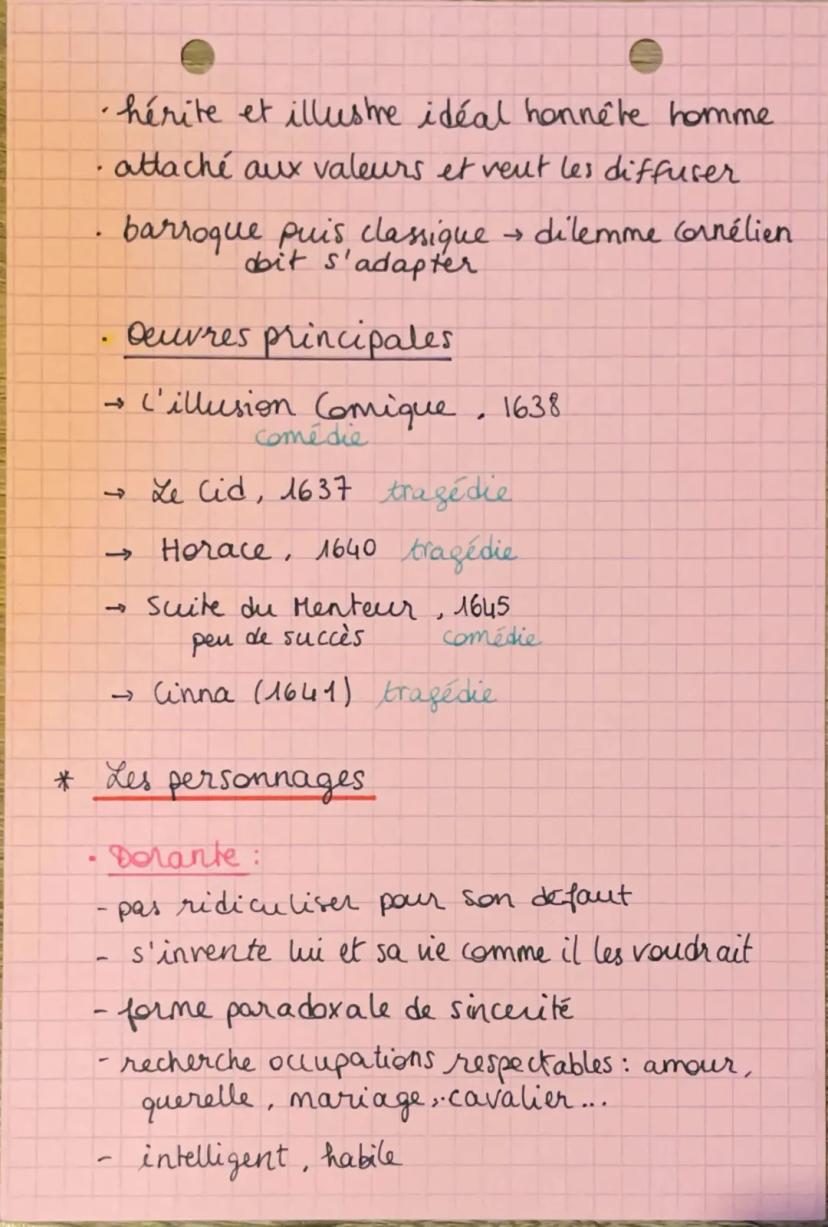 · hérite et illustre idéal honnête homme
· attaché aux valeurs et veut les diffuser
· barroque puis classique → dilemme Cornélien
doit s'adapter
· Oeuvres principales
→ L'illusion Comique, 1638
comédie
→ Le Cid, 1637 tragédie
→ Horace, 1640 tragédie
→ Suite du Menteur, 1645
peu de succès comédie
→ Cinna (1641) tragédie
* Les personnages
· Dorante :
- pas ridiculiser pour son defaut
- s'invente lui et sa vie comme il les voudrait
- forme paradoxale de sincerité
- recherche occupations respectables : amour,
querelle, mariage, cavalier...
- intelligent, habile